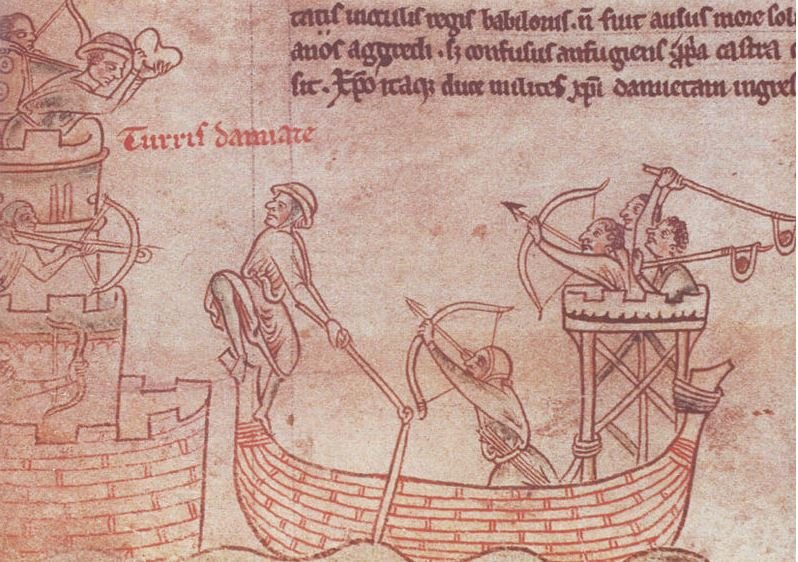 tatis in oculis regis babilonis. n̄ fuit ausus more soli
anos aggredi. sꝫ confusus aufugiens ꝓp̄a castra
sit. Xp̄o itaqꝫ duce milites xp̄i damietam ingres
Turris damiate